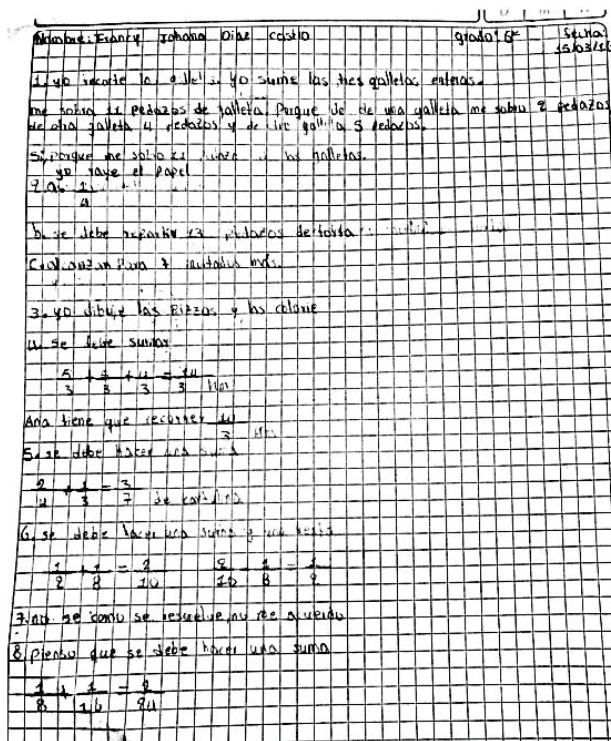 Nombre: Francy Johana Diaz castro grado: 6º fecha
15/03/16
1. yo recorte la yo sume las tres galletas enteras.
me sobra 11 pedazos de galleta. Porque de una galleta me sobro 2 pedazos
de otra galleta 4 pedazos y de galleta 5 pedazos.
si, porque me sobro 11 las galletas.
yo raye el papel
2. a. 1/4
b. se debe repartir 13 pedazos de torta
C. alcanzan para 7 invitados más.
3. yo dibuje las Pizzas y las colorie
4. se debe sumar
5/3 + /3 + 4/3 = 14/3 Km
Ana tiene que recorrer 14/3 Km
5. se debe hacer una suma
2/4 + 1/3 = 3/7 de
6. se debe hacer una suma y una resta
1/2 + 1/8 = 2/10 2/10 - 1/8 = 1/2
7. no se como se resuelve, no me acuerdo
8. pienso que se debe hacer una suma
1/8 + 1/16 = 2/24